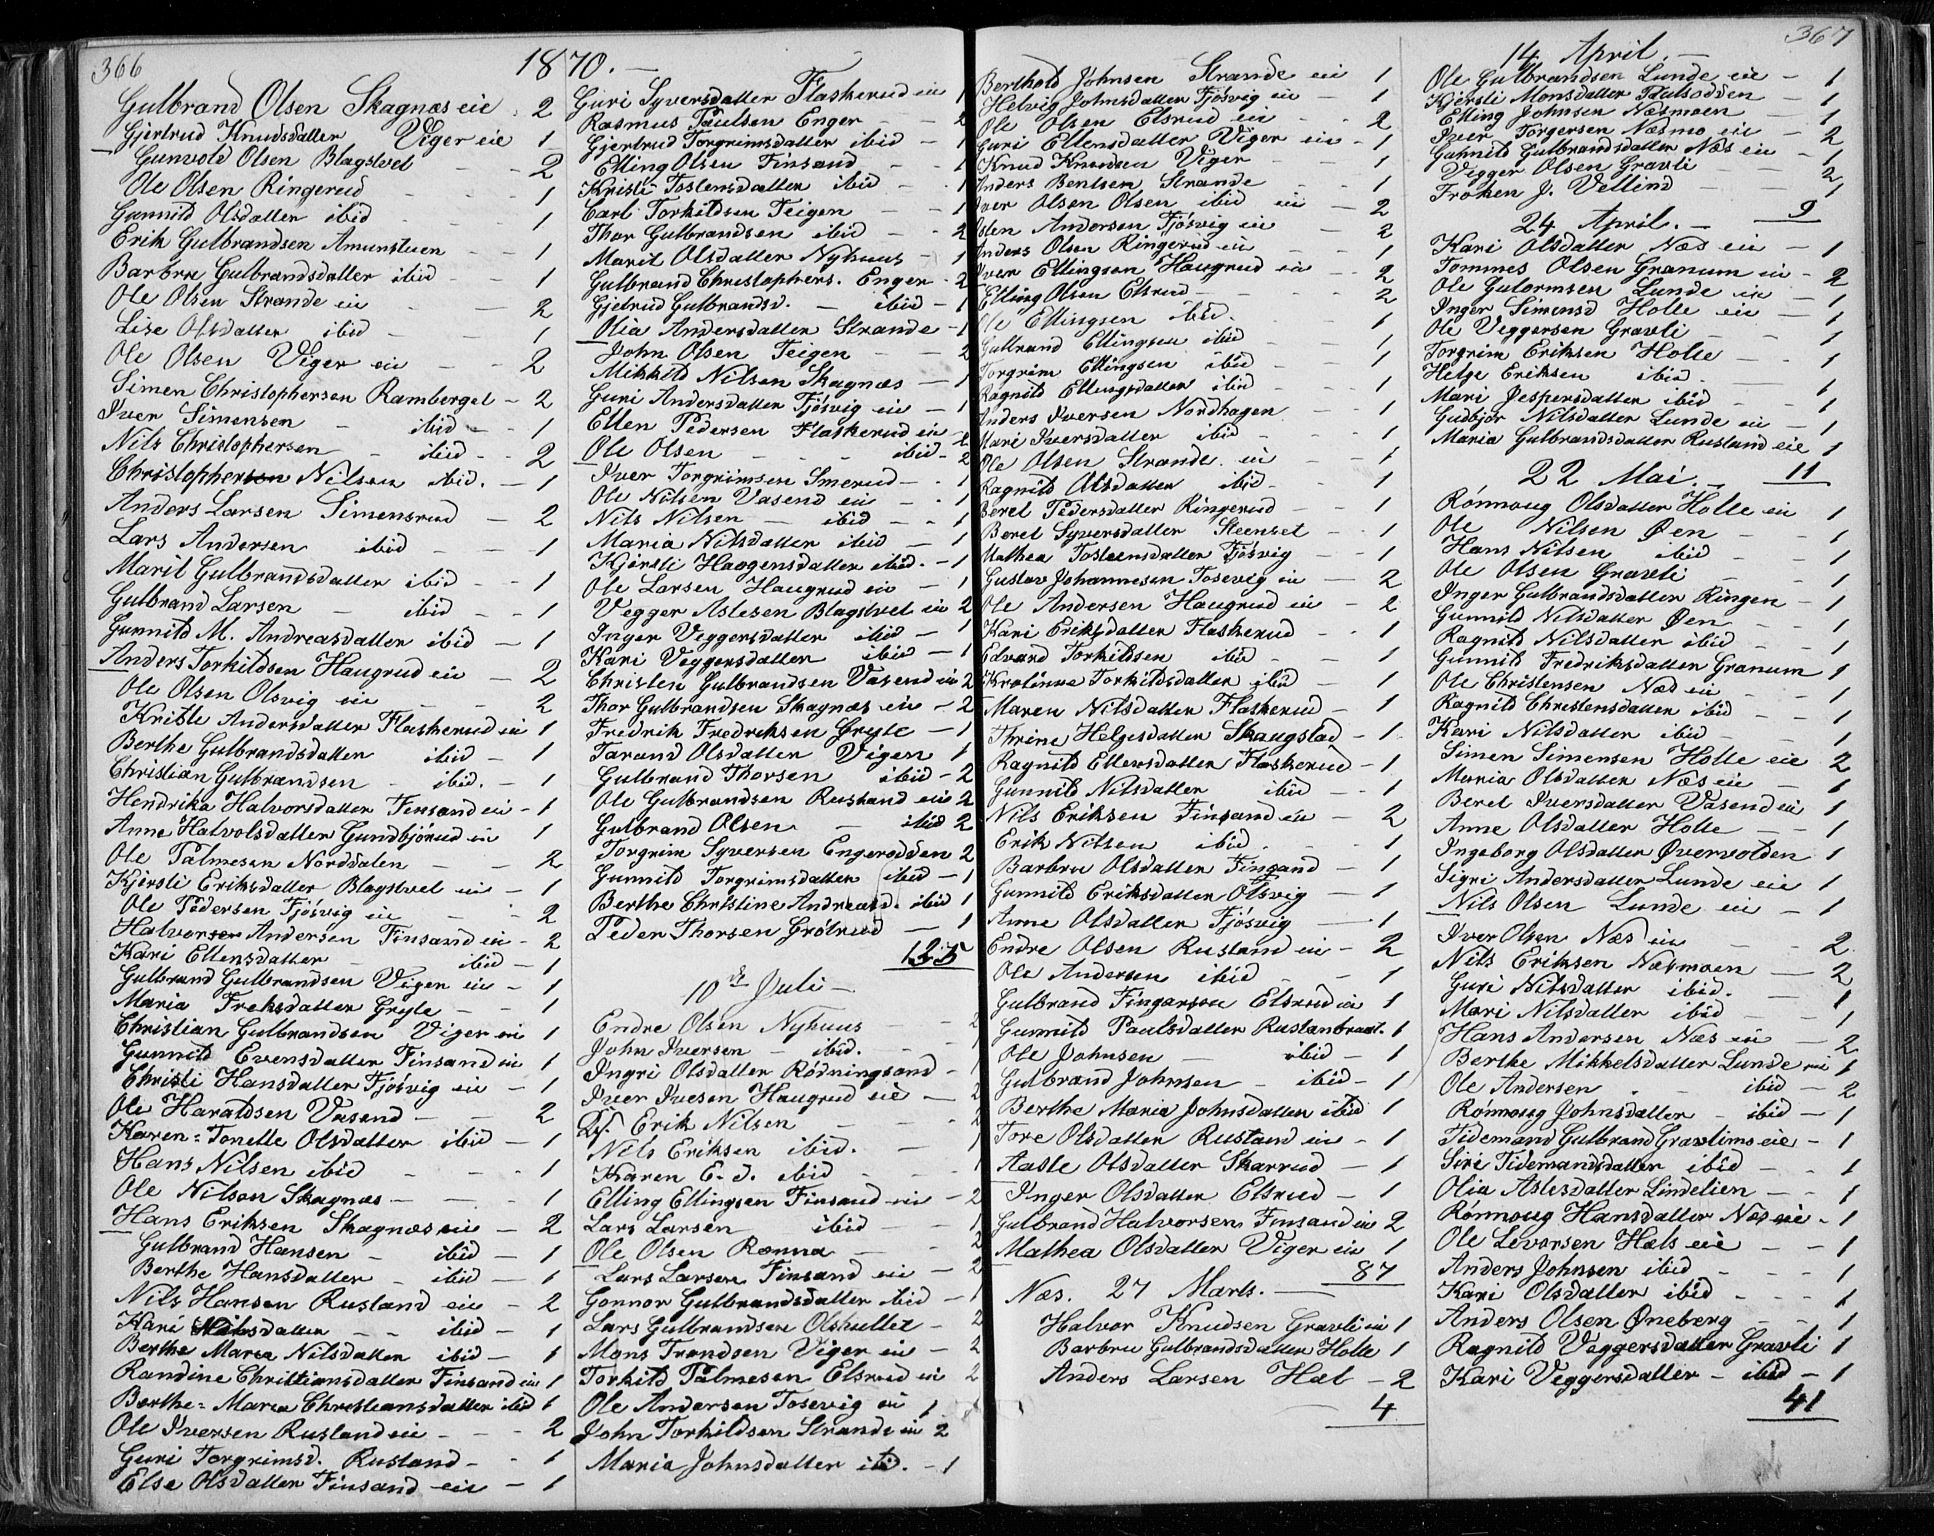 366
1870.
Gulbrand Olsen Skagnæs eie 2
Gjertrud Knudsdatter Viger eie 1
Gunvold Olsen Blagstvet - - 2
Ole Olsen Ringerud - - 1
Gunnild Olsdatter ibid - - 1
Erik Gulbrandsen Amunstuen - - 1
Barbru Gulbrandsdatter ibid - - 1
Ole Olsen Strande eie - - 2
Lise Olsdatter ibid - - 1
Ole Olsen Viger eie - - 2
Simen Christophersen Ramberget - 2
Iver Simensen - ibid - - 1
Nils Christophersen - ibid - - 2
Christopher Nilsen ibid. - 1
Anders Larsen Simensrud - 2
Lars Andersen ibid - - 1
Marit Gulbrandsdatter ibid - - 1
Gulbrand Larsen - ibid - - 1
Gunnild M. Andreasdatter ibid - 1
Anders Torkildsen Haugrud eie - 2
Ole Olsen Olsvig eie - - 2
Kristi Andersdatter Flaskerud eie 1
Berthe Gulbrandsdatter ibid - 1
Christian Gulbrandsen - ibid. - 1
Hendrika Halvorsdatter Finsand eie - 1
Anne Halvolsdatter Gundbjörud eie 1
Ole Palmesen Norddalen - - 2
Kjersti Eriksdatter Blagstvet eie - 1
Ole Pedersen Fjösvig eie - - 2
Halvor Andersen Finsand eie - 2
Kari Ellensdatter - ibid - 1
Gulbrand Gulbrandsen Vigen eie - 1
Maria Freksdatter Gryte - - 1
Christian Gulbrandsen Viger eie 1
Gunnild Evensdatter Finsand eie 1
Christi Hansdatter Fjösvig eie - 1
Ole Haraldsen Vasend - - 2
Karen-Tonette Olsdatter ibid - 1
Hans Nilsen ibid - - 1
Ole Nilsen Skagnæs - - 1
Hans Eriksen Skagnæs eie - 2
Gulbrand Hansen - ibid - 1
Berthe Hansdatter - ibid - 1
Nils Hansen Rusland eie - 2
Kari Nilsdatter - - ibid - 1
Berthe Maria Nilsdatter ibid - 1
Randine Christiansdatter Finsand eie 1
Berthe-Maria Christiansdatter ibid 1
Ole Iversen Rusland eie - - 2
Guri Torgrimsd. Rusland - - 1
Else Olsdatter Finsand eie - 1
Guri Syversdatter Flaskerud eie 1
Rasmus Paulsen Enger - - 2
Gjertrud Torgrimsdatter ibid - 1
Elling Olsen Finsand - - 1
Kristi Tostensdatter ibid - - 1
Carl Torkildsen Teigen - - 1
Thor Gulbrandsen ibid - - 2
Marit Olsdatter Nyhuus - 1
Gulbrand Christophers. Enger - 2
Gjertrud Gulbrandsd. - ibid - 1
Olia Andersdatter Strande - 1
John Olsen Teigen - - 2
Mikkild Nilsen Skagnæs - 1
Guri Andersdatter Fjösvig eie - 1
Ellen Pedersen Flaskerud eie - 2
Ole Olsen - - - ibid - 2
Iver Torgrimsen Smerud - - 1
Ole Nilsen Vasend eie - - 1
Nils Nilsen - ibid - - 1
Maria Nilsdatter ibid - 1
Kjersti Haagensdatter ibid. - 1
Ole Larsen Haugrud eie - 1
Vegger Aslesen Blagstvet eie 2
Inger Veggersdatter ibid - 1
Kari Veggersdatter ibid - 1
Christen Gulbrandsen Vasend eie 2
Thor Gulbrandsen Skagnæs eie - 2
Fredrik Fredriksen Gryte - 1
Tarand Olsdatter Vigen 1
Gulbrand Thorsen ibid - 2
Ole Gulbrandsen Rusland eie 2
Gulbrand Olsen - ibid 2
Torgrim Syversen Engerodden 2
Gunnild Torgrimsdatter ibid - 1
Berthe Christine Andreasd. ibid 1
Peder Thorsen Grötrud - 1
135
10de Juli -
Endre Olsen Nyhuus - 2
John Iversen - ibid. - 1
Ingri Olsdatter Rödningsand - 1
Iver Ivesen Haugrud eie - 2
Erik Nilsen - - - 2
Nils Eriksen ibid. - 1
Karen E. d. ibid - - 1
Elling Ellingsen Finsand eie - 2
Lars Larsen ibid - - 1
Ole Olsen Rænna - - 2
Lars Larsen Finsand eie - 2
Gonnor Gulbrandsdatter ibid - 1
Lars Gulbrandsen Olshullet - 2
Mons Trondsen Viger eie - 2
Torkild Palmesen Elsrud eie 2
Ole Andersen Tosevig eie 1
John Torkildsen Strande eie 2
Maria Johnsdatter ibid. - 1
367
Berthold Johnsen Strande eie 1
Helvig Johnsdatter Fjösvig eie - 1
Ole Olsen Elsrud eie - - 2
Guri Ellensdatter Viger eie - 1
Knud Knudsen Viger - - 1
Anders Bentsen Strande - 1
Iver Olsen Olsen ibid eie - 2
Osten Andersen Fjösvig eie 2
Anders Olsen Ringerud eie - 1
Iver Ellingsen Haugrud eie - 2
Elling Olsen Elsrud - - 2
Ole Ellingsen ibid. - 1
Gulbrand Ellingsen ibid - - 1
Torgrim Ellingsen ibid - - 1
Ragnild Ellingsdatter ibid - - 1
Anders Iversen Nordhagen - 1
Mari Iversdatter ibid - - 1
Ole Olsen Strande. eie - - 1
Ragnild Olsdatter ibid - - 1
Beret Pedersdatter Ringerud - - 1
Beret Syversdatter Steenset - 1
Mathea Tosteensdatter Fjösvig - 1
Gustav Johannesen Tosevig eie - 2
Ole Andersen Haugrud eie - 2
Kari Eriksdatter Flaskerud - - 1
Edvard Torkildsen ibid - - 1
Karolinne Torkildsdatter ibid - 1
Maren Nilsdatter Flaskerud - 1
Thrine Helgesdatter Skaugstad - 1
Ragnild Ellensdatter Flaskerud - 1
Gunnild Nilsdatter ibid - - 1
Nils Eriksen Finsand eie - 2
Erik Nilsen ibid. - - 1
Barbru Olsdatter Finsand - 1
Gunnild Eriksdatter Olsvig - 1
Anne Olsdatter Fjösvig - 1
Endre Olsen Rusland eie - 2
Ole Andersen ibid - - 1
Gulbrand Fingarson Elsrud eie 1
Gunnild Paulsdatter Ruslanbraat. 1
Ole Johnsen - ibid - 1
Gulbrand Johnsen - ibid - 1
Berthe Maria Johnsdatter ibid 1
Tore Olsdatter Rustand eie - 1
Aasle Olsdatter Skarrud - 1
Inger Olsdatter Elsrud - 1
Gulbrand Halvorsen Finsand eie 2
Mathea Olsdatter Viger eie 1
87
Næs. 27 Marts. -
Halvor Knudsen Gravli eie 1
Barbru Gulbrandsdatter Holte 1
Anders Larsen Hæl - 2
4
14 April. -
Ole Gulbrandsen Lunde eie - 1
Kjersti Monsdatter Paulsodden - 1
Elling Johnsen Næsmoen - 1
Iver Torgersen Næsmo eie - 2
Guhnild Gulbrandsdatter Næs eie - 1
Vigger Olsen Gravli - 2
Froken J. Vellind - - 1
9
24 April. -
Kari Olsdatter Næs eie - 1
Tommes Olsen Granum eie - 2
Ole Gulormsen Lunde eie - 1
Inger Simensd Holte eie - 1
Ole Veggersen Gravli - - 1
Torgrim Eriksen Holte - - 1
Helge Eriksen ibid - 1
Mari Jespersdatter ibid - - 1
Gudbjör Nilsdatter Lunde eie - 1
Maria Gulbrandsdatter Rusland eie 1
11
22 Mai. -
Rönnoug Olsdatter Holte eie 1
Ole Nilsen Øen - - 1
Hans Nilsen ibid - - 1
Ole Olsen Gravli - - 1
Inger Gulbrandsdatter Ringen - 1
Gunnild Nilsdatter Øen - - 1
Ragnild Nilsdatter ibid - - 1
Gunnild Fredriksdatter Granum 1
Ole Christensen Næs eie - - 1
Ragnild Christensdatter ibid - - 1
Kari Nilsdatter ibid - - 1
Simen Simensen Holte eie 2
Maria Olsdatter Næs eie - 1
Beret Iversdatter Vasend eie 1
Anne Olsdatter Holte - - 1
Ingeborg Olsdatter Øvervolden 1
Sigri Andersdatter Lunde eie 1
Nils Olsen Lunde eie - 1
Iver Olsen Næs eie - - 2
Nils Eriksen Næsmoen - 2
Guri Nilsdatter ibid. - 1
Mari Nilsdatter ibid - - 1
Hans Andersen Næs eie - 2
Berthe Mikkelsdatter Lunde eie 1
Ole Andersen - - ibid - 2
Rönnoug Johnsdatter - ibid - 1
Tidemand Gulbrand Gravlims eie - 1
Siri Tidemandsdatter ibid - - 1
Olia Aslesdatter Lindelien - - 1
Rönnoug Hansdatter Næs eie - 1
Ole Levorsen Hæls eie - - 1
Anders Johnsen ibid - - 1
Kari Olsdatter ibid - - 1
Anders Olsen Øneberg - - 1
Ragnild Veggersdatter Gravli 1
Kari Veggersdatter - ibid - 1
41